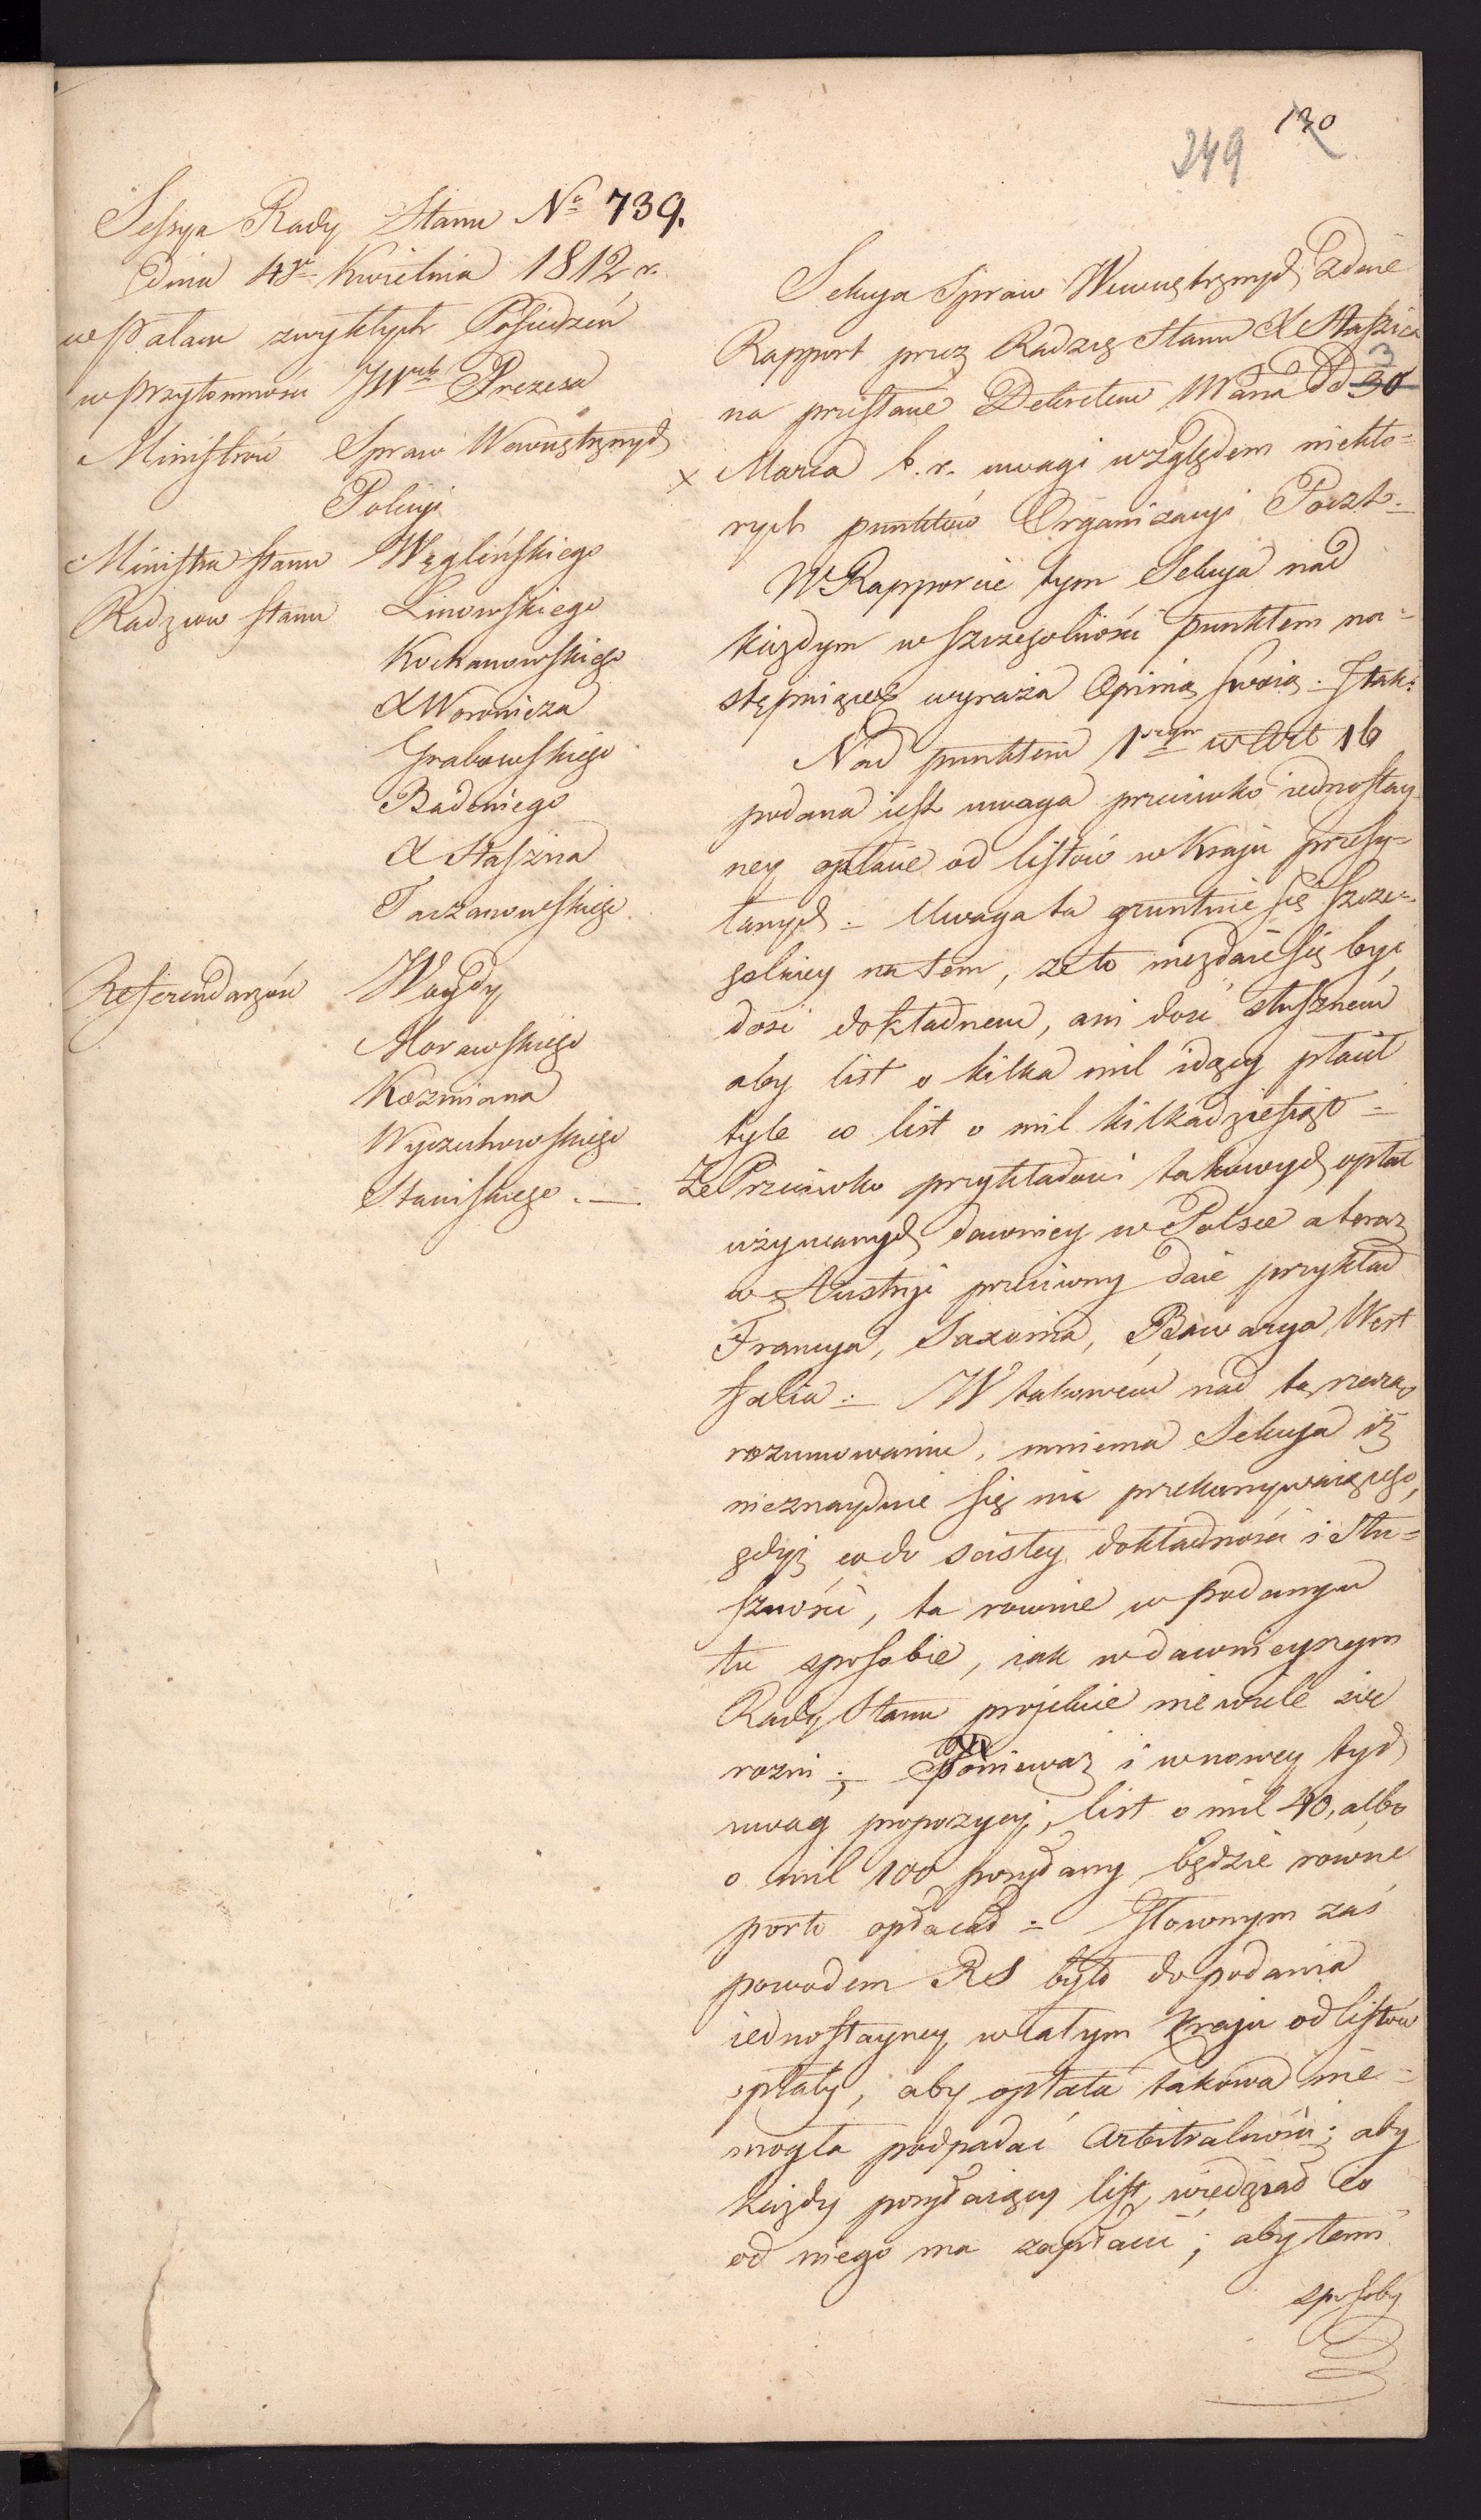 130
249
Sessya Rady Stanu No 739.
Dnia 4go Kwietnia 1812 r.
w Pałacu zwykłych Posiedzeń
w przytomności JWch Prezesa
Ministrów Spraw Wewnętrznych
Policyi
Ministra Stanu Węgleńskiego
Radzców Stanu Linowskiego
Kochanowskiego
X Woronicza
Grabowskiego
Badeniego
X Staszica
Taczanowskiego
Referendarzów Woydy
Morawskiego
Kozmiana
Wyczechowskiego
Stawiskiego. —
Sekcya Spraw Wewnętrznych Zdaie
Rapport przez Radzcę Stanu X Staszica
na przesłane Dekretem Mana dd 30 3
x Marca b. r. uwagi względem niektó=
rych punktów Organizacyi Poczt. —
W Rapporcie tym Sekcya nad
każdym w szczegolności punktem na=
stępuiącą wyraża Opinią swoią. I tak:
Nad punktem 1wszym w Art 16
podana iest uwaga przeciwko iednostay
ney opłacie od listów w Kraju przesy=
łanych. — Uwaga ta gruntuie się szcze=
golniey na tem, że to niezdaie się być
dość dokładnem, ani dość słusznem
aby list o kilka mil idący płacił
tyle co list o mil kilkadziesiąt —
Że Przeciwko przykładowi takowych opłat
używanych dawniey w Polsce a teraz
w Austryi przeciwny daie przykład
Francya, Saxonia, Bawarya, West
falia. — W takowem nad tą rzeczą
rozumowaniu, mniema Sekcya iż
nieznayduie się nic przekonywaiącego,
gdyż co do scisłey dokładności i słu=
szności, ta rownie w podanym
tu sposobie, iak w dawnieyszym
Rady Stanu projekcie nie wiele się
rozni; — Ponieważ i w nowey tych
uwag propozycyi, list o mil 40, albo
o mil 100 posyłany będzie równe
porto opłacał — Głownym zaś
powodem RS było do podania
iednostayney w całym Kraju od listów
opłaty, aby opłata takowa nie=
mogła podpadać Arbitralności; aby
każdy posyłaiący list, wiedział co
od niego ma zapłacić; aby temi
sposoby